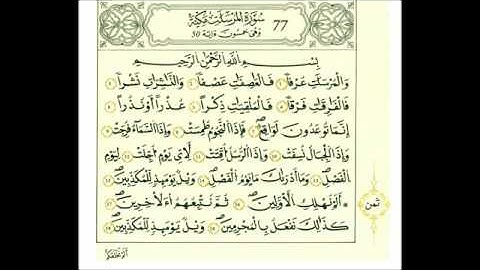 سورة المرسلت مكية
77
وهي خمسون ءاية 50
بسم الله الرحمن الرحيم
وَالْمُرْسَلَٰتِ عُرْفاً ١ فَالْعَٰصِفَٰتِ عَصْفاً ٢ وَالنَّٰشِرَٰتِ نَشْراً ٣
فَالْفَٰرِقَٰتِ فَرْقاً ٤ فَالْمُلْقِيَٰتِ ذِكْراً ٥ عُذْراً اَوْ نُذُراً ٦
اِنَّمَا تُوعَدُونَ لَوَٰقِعٌ ٧ فَإِذَا النُّجُومُ طُمِسَتْ ٨ وَإِذَا السَّمَآءُ فُرِجَتْ ٩
وَإِذَا الْجِبَالُ نُسِفَتْ ١٠ وَإِذَا الرُّسُلُ أُقِّتَتْ ١١ لِأَيِّ يَوْمٍ اُجِّلَتْ ١٢ لِيَوْمِ
الْفَصْلِ ١٣ وَمَآ أَدْرَىٰكَ مَا يَوْمُ الْفَصْلِ ١٤ وَيْلٌ يَوْمَئِذٍ لِّلْمُكَذِّبِينَ ١٥
اَلَمْ نُهْلِكِ الْأَوَّلِينَ ١٦ ثُمَّ نُتْبِعُهُمُ الْأَخِرِينَ ١٧
كَذَٰلِكَ نَفْعَلُ بِالْمُجْرِمِينَ ١٨ وَيْلٌ يَوْمَئِذٍ لِّلْمُكَذِّبِينَ ١٩
ثمن
ألم نخلقكم